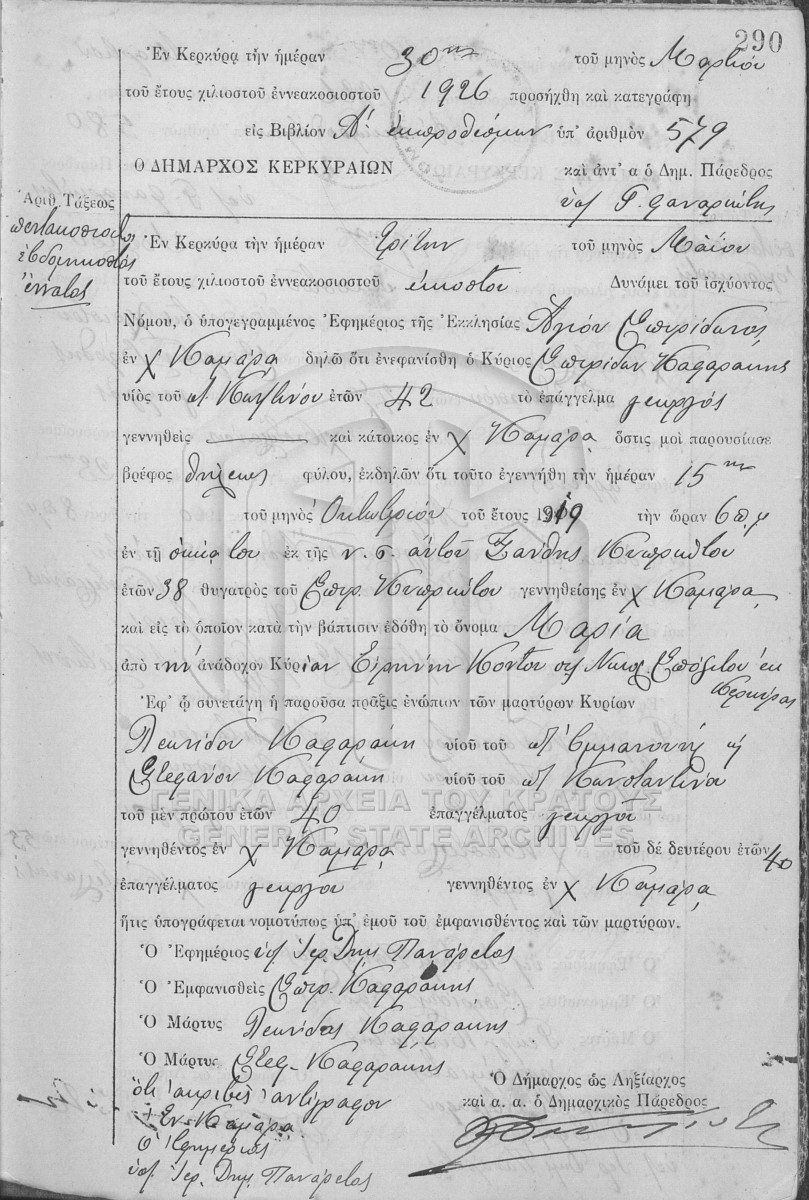 290
Ἐν Κερκύρᾳ τὴν ἡμέραν 30ην τοῦ μηνὸς Μαρτίου
τοῦ ἔτους χιλιοστοῦ ἐννεακοσιοστοῦ 1926 προσήχθη καὶ κατεγράφη
εἰς Βιβλίον Α΄. ἐκπροθέσμων ὑπ' ἀριθμὸν 579
Ο ΔΗΜΑΡΧΟΣ ΚΕΡΚΥΡΑΙΩΝ καὶ ἀντ' α ὁ Δημ. Πάρεδρος
Ἀριθ. Τάξεως
πεντακοσιοστὸς
ἑβδομηκοστὸς
ἔννατος
Ἐν Κερκύρᾳ τὴν ἡμέραν τρίτην τοῦ μηνὸς Μαΐου
τοῦ ἔτους χιλιοστοῦ ἐννεακοσιοστοῦ εἰκοστοῦ Δυνάμει τοῦ ἰσχύοντος
Νόμου, ὁ ὑπογεγραμμένος Ἐφημέριος τῆς Ἐκκλησίας Ἁγίου Σπυρίδωνος
ἐν χ Καμάρᾳ δηλῶ ὅτι ἐνεφανίσθη ὁ Κύριος Σπυρίδων Καφαράκης
υἱὸς τοῦ ἐτῶν 42 τὸ ἐπάγγελμα γεωργός
γεννηθεὶς καὶ κάτοικος ἐν χ Καμάρᾳ ὅστις μοὶ παρουσίασε
βρέφος θήλεως φύλου, ἐκδηλῶν ὅτι τοῦτο ἐγεννήθη τὴν ἡμέραν 15ην
τοῦ μηνὸς Ὀκτωβρίου τοῦ ἔτους 1919 τὴν ὥραν 6 π.μ
ἐν τῇ οἰκίᾳ του ἐκ τῆς ν. σ. αὐτοῦ Ξάνθης Κυπριώτου
ἐτῶν 38 θυγατρὸς τοῦ Σπυρ. Κυπριώτου γεννηθείσης ἐν χ Καμάρᾳ
καὶ εἰς τὸ ὁποῖον κατὰ τὴν βάπτισιν ἐδόθη τὸ ὄνομα Μαρία
ἀπὸ τὴν ἀνάδοχον Κυρίαν Εἰρήνην Κόντου ἐκ
Κερκύρας
Ἐφ' ᾧ συνετάγη ἡ παροῦσα πρᾶξις ἐνώπιον τῶν μαρτύρων Κυρίων
Λεωνίδου Καφαράκη υἱοῦ τοῦ Ἐμμανουὴλ
Στεφάνου Καφαράκη υἱοῦ τοῦ Κωνσταντίνου
ΓΕΝΙΚΑ ΑΡΧΕΙΑ ΤΟΥ ΚΡΑΤΟΥΣ
GENERAL STATE ARCHIVES
τοῦ μὲν πρώτου ἐτῶν 40 ἐπαγγέλματος γεωργοῦ
γεννηθέντος ἐν χ Καμάρᾳ τοῦ δέ δευτέρου ἐτῶν 40
ἐπαγγέλματος γεωργοῦ γεννηθέντος ἐν χ Καμάρᾳ
ἥτις ὑπογράφεται νομοτύπως ὑπ' ἐμοῦ τοῦ ἐμφανισθέντος καὶ τῶν μαρτύρων.
Ὁ Ἐφημέριος Ἱερ. Δημ. Πανάρετος
Ὁ Ἐμφανισθεὶς Σπυρ. Καφαράκης
Ὁ Μάρτυς Λεωνίδας Καφαράκης
Ὁ Μάρτυς Στεφ. Καφαράκης
ὅτι ἀκριβὲς ἀντίγραφον
Ἐν Καμάρᾳ
Ὁ Ἐφημέριος
Ἱερ. Δημ. Πανάρετος
Ὁ Δήμαρχος ὡς Ληξίαρχος
καὶ α. α. ὁ Δημαρχικὸς Πάρεδρος